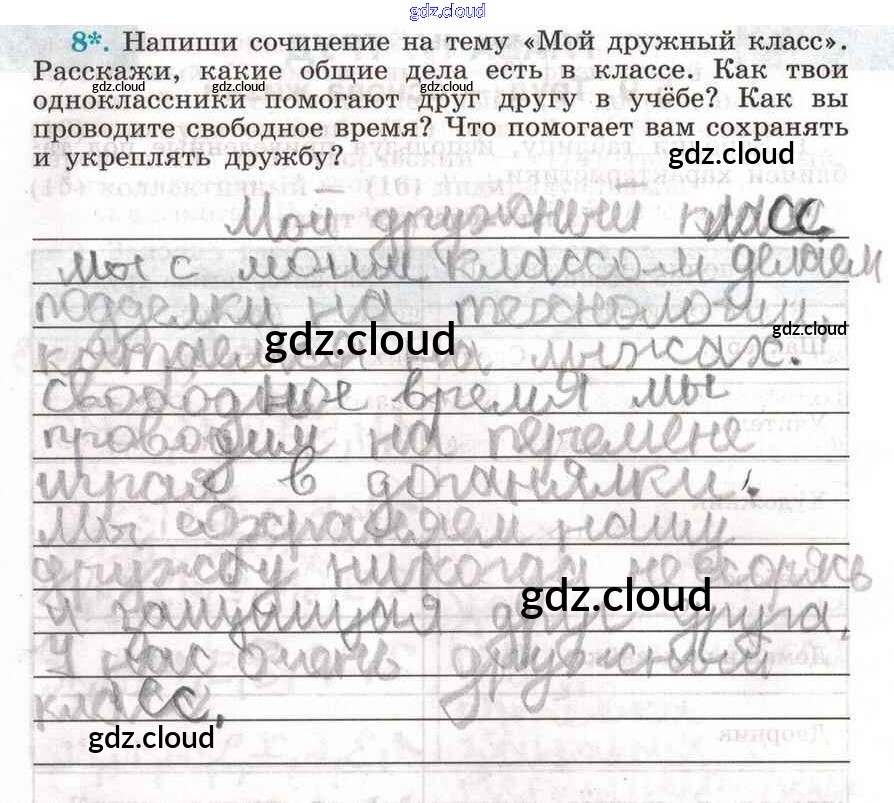 gdz.cloud
8*. Напиши сочинение на тему «Мой дружный класс».
Расскажи, какие общие дела есть в классе. Как твои
gdz.cloud gdz.cloud gdz.cloud
одноклассники помогают друг другу в учёбе? Как вы
проводите свободное время? Что помогает вам сохранять
и укреплять дружбу?
gdz.cloud
Мой дружный класс
Мы с моим классом делаем
подделки на технологии,
gdz.cloud
gdz.cloud
катаемся на лыжах.
Свободное время мы
проводим на перемене
играя в доганялки.
Мы сохраняем нашу
дружбу никогда не сорясь
gdz.cloud
и защищая друг друга.
У нас очень дружный
класс.
gdz.cloud